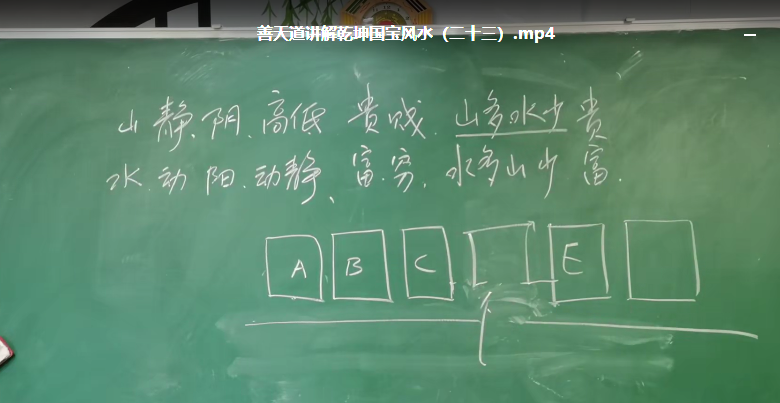 善天道讲解乾坤国宝风水（二十三）.mp4
山静、阴、高低 贵贱. 山多水少贵
水.动阳.动静、富.穷. 水多山少富.
A B C E